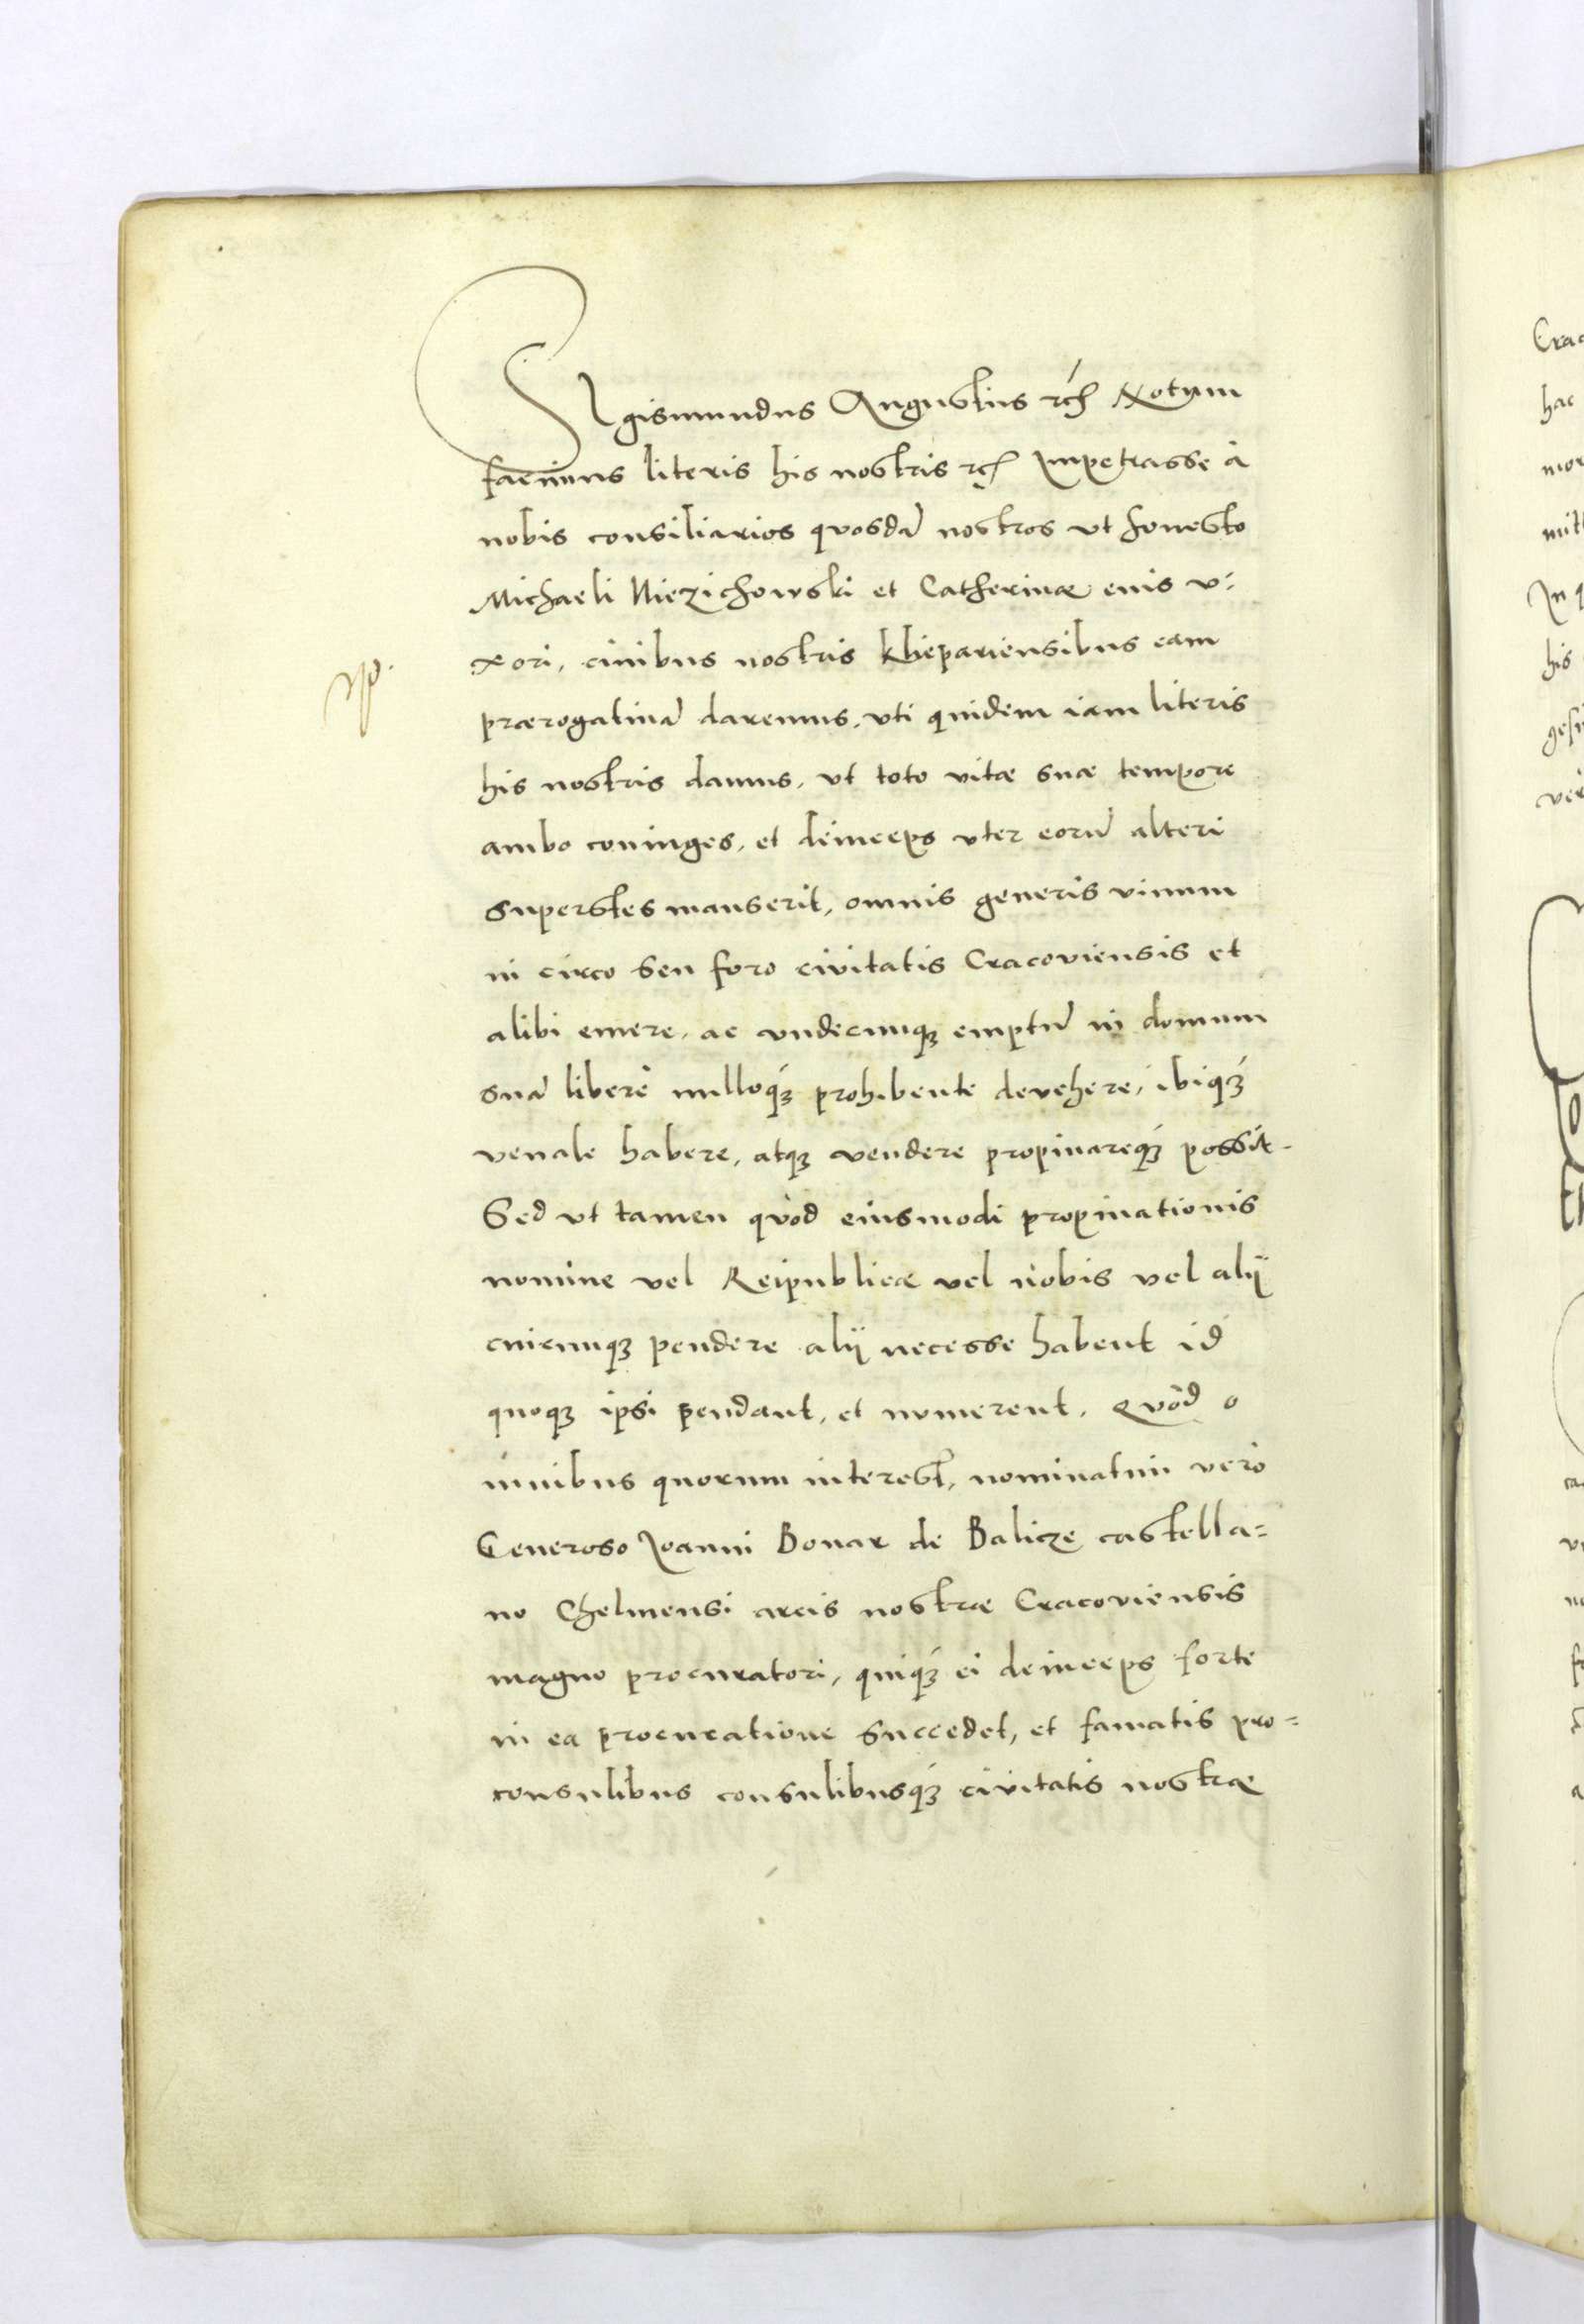 SIgismundus Augustus etc̃ Notum
facimus literis his nostris etc̃ Impetrasse à
nobis consiliarios quosdã nostros ut honesto
Michaeli Niezichowski et Catherinæ eius u-
xori, civibus nostris Klepariensibus eam
prærogativã daremus, uti quidem iam literis
his nostris damus, ut toto vitæ suæ tempore
ambo coniuges, et deinceps uter eorũ alteri
superstes manserit, omnis generis vinum
in circo seu foro civitatis Cracoviensis et
alibi emere, ac undecunqꝫ emptũ in domum
suã liberè nulloqꝫ́ prohibente devehere, ibiqꝫ́
venale habere, atqꝫ vendere propinareqꝫ́ possit.
Sed ut tamen quòd eiusmodi propinationis
nomine vel Reipublicæ vel nobis vel alij
cuicunqꝫ pendere alij necesse habent id
quoqꝫ ipsi pendant, et numerent. Quòd o
mnibus quorum interest, nominatim verò
Generoso Joanni Bonar de Balicze castella=
no Chelmensi arcis nostræ Cracoviensis
magno procuratori, quiqꝫ́ ei deinceps forte
in ea procuratione succedet, et famatis pro=
consulibus consulibusqꝫ́ civitatis nostræ